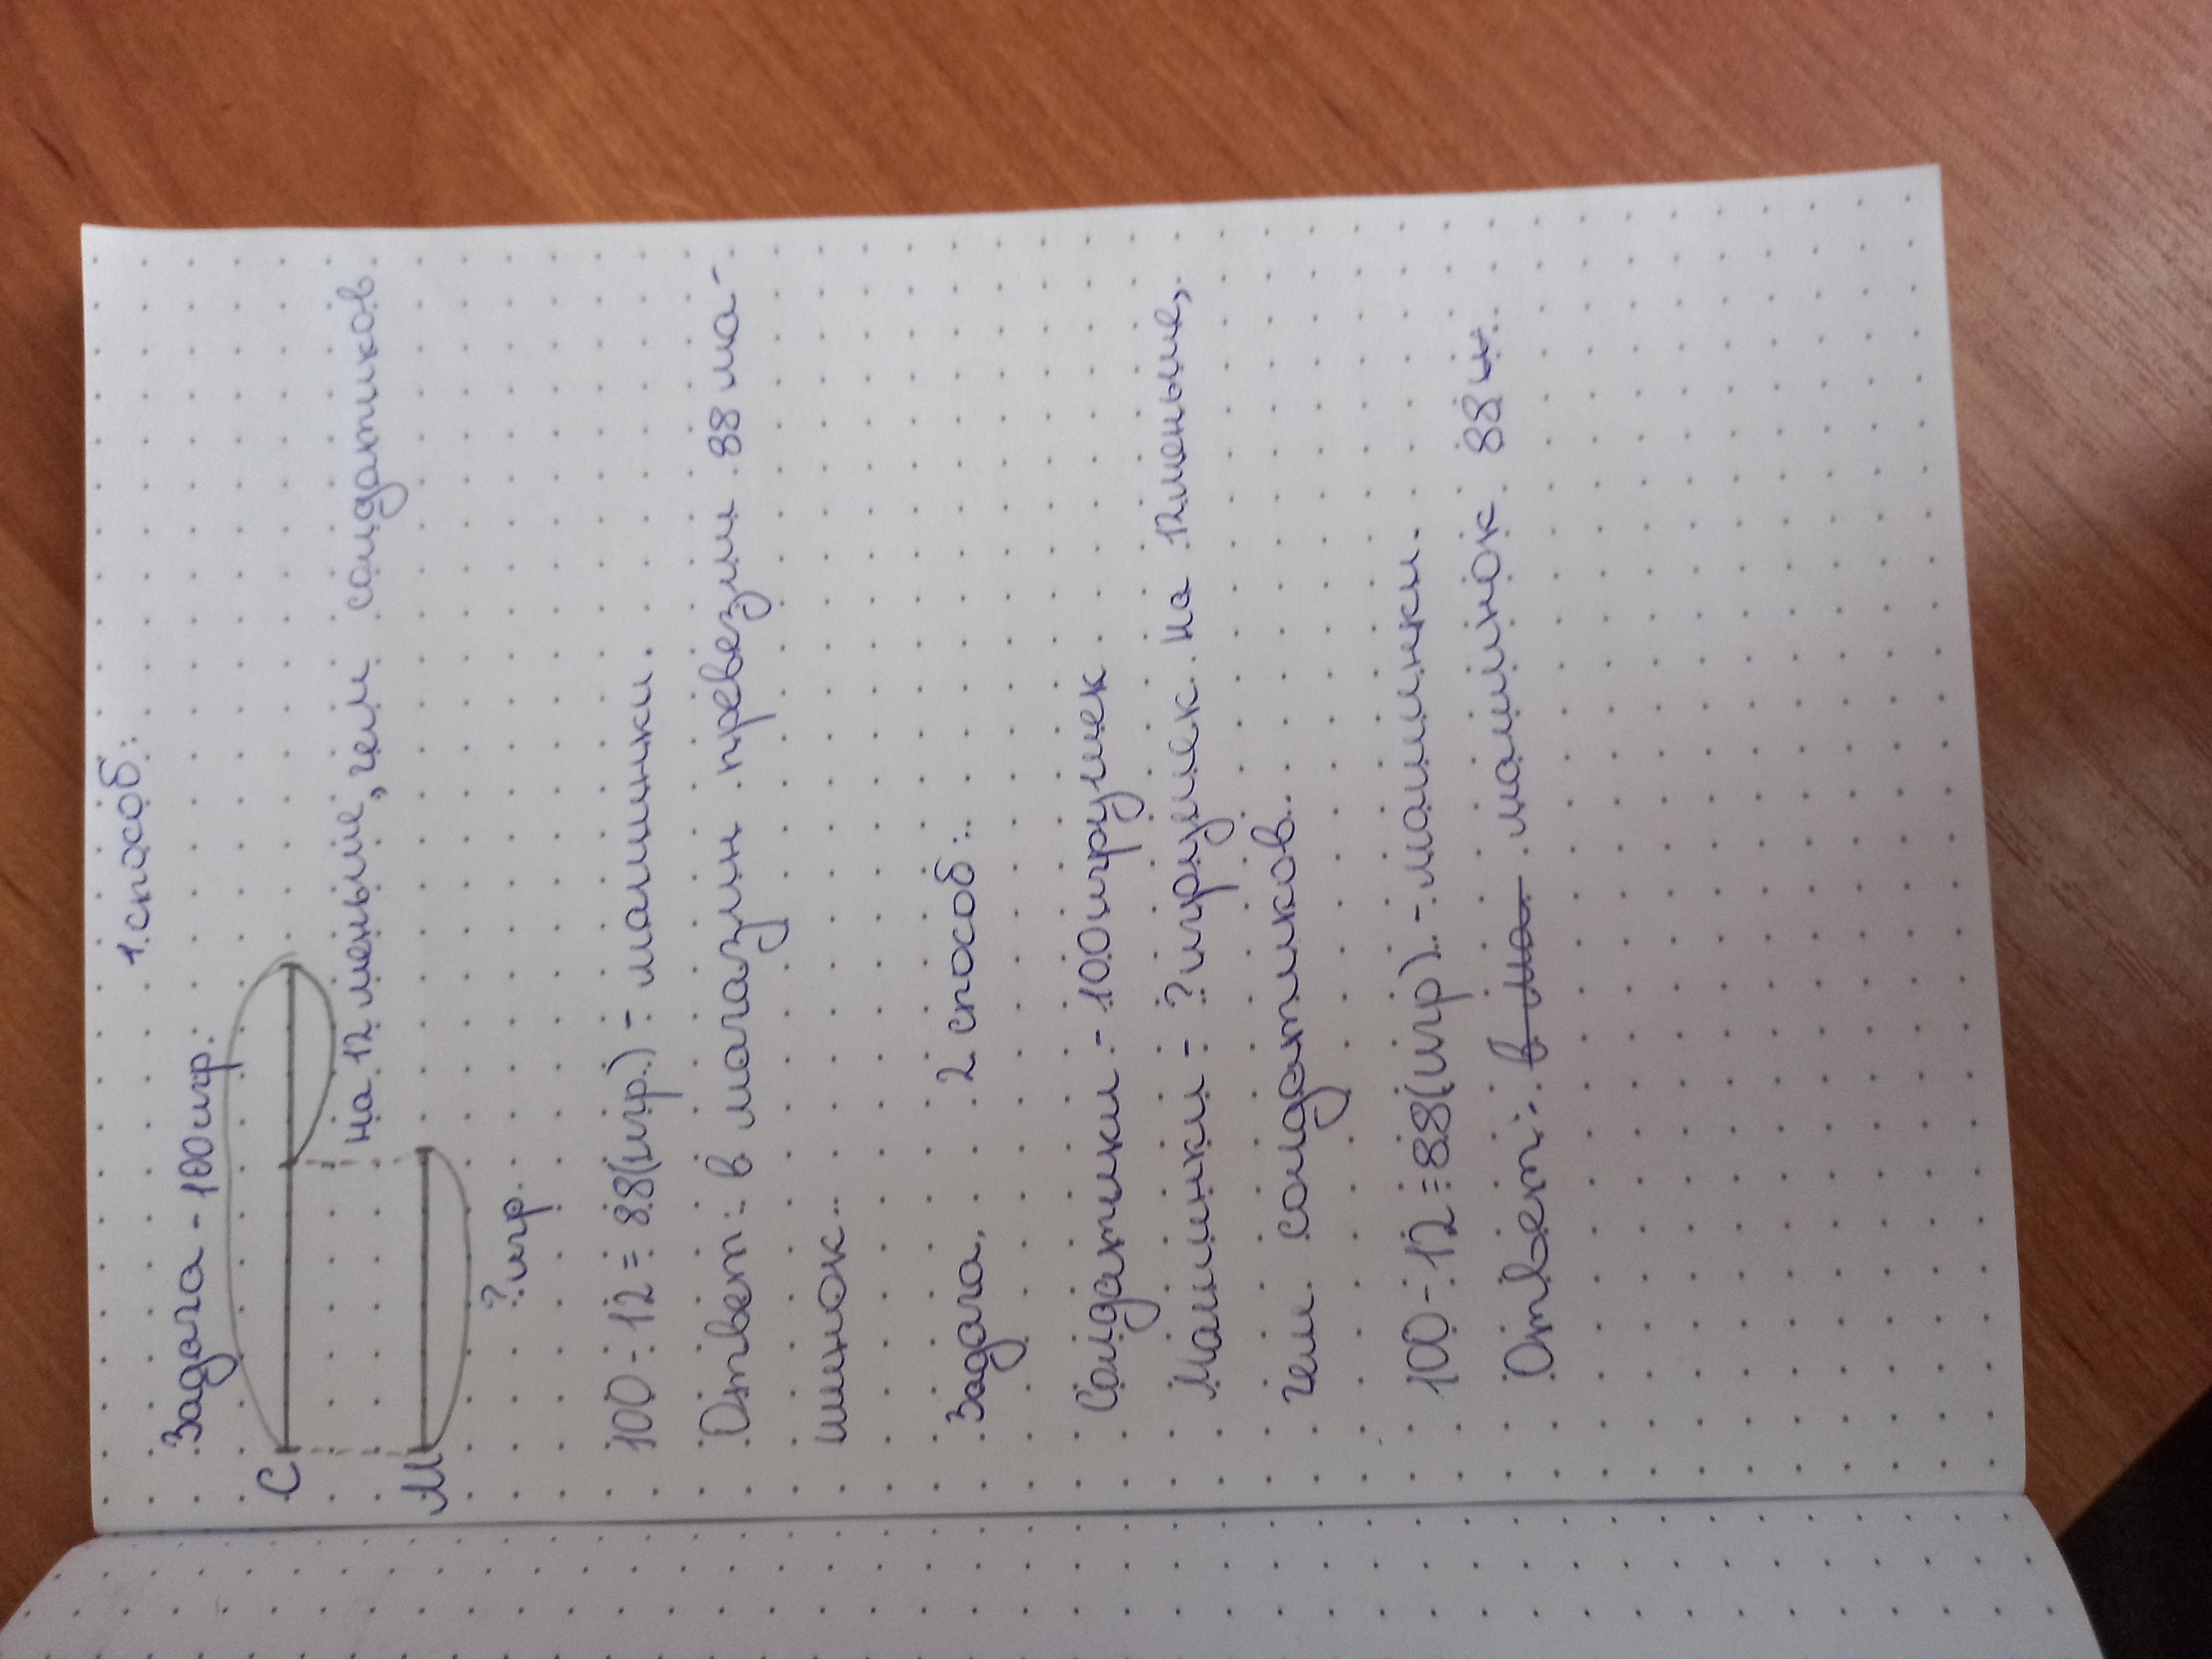 1 способ:
Задача - 100 игр.
С
на 12 меньше, чем солдатиков
М
? игр.
100 - 12 = 88 (игр.) - машинки.
Ответ: в магазин превезли 88 ма-
шинок.
Задача. 2 способ:
Солдатики - 100 игрушек
Машинки - ? игрушек на 12 меньше,
чем солдатиков.
100 - 12 = 88 (игр) - машинки.
Ответ: в ма машинок 88